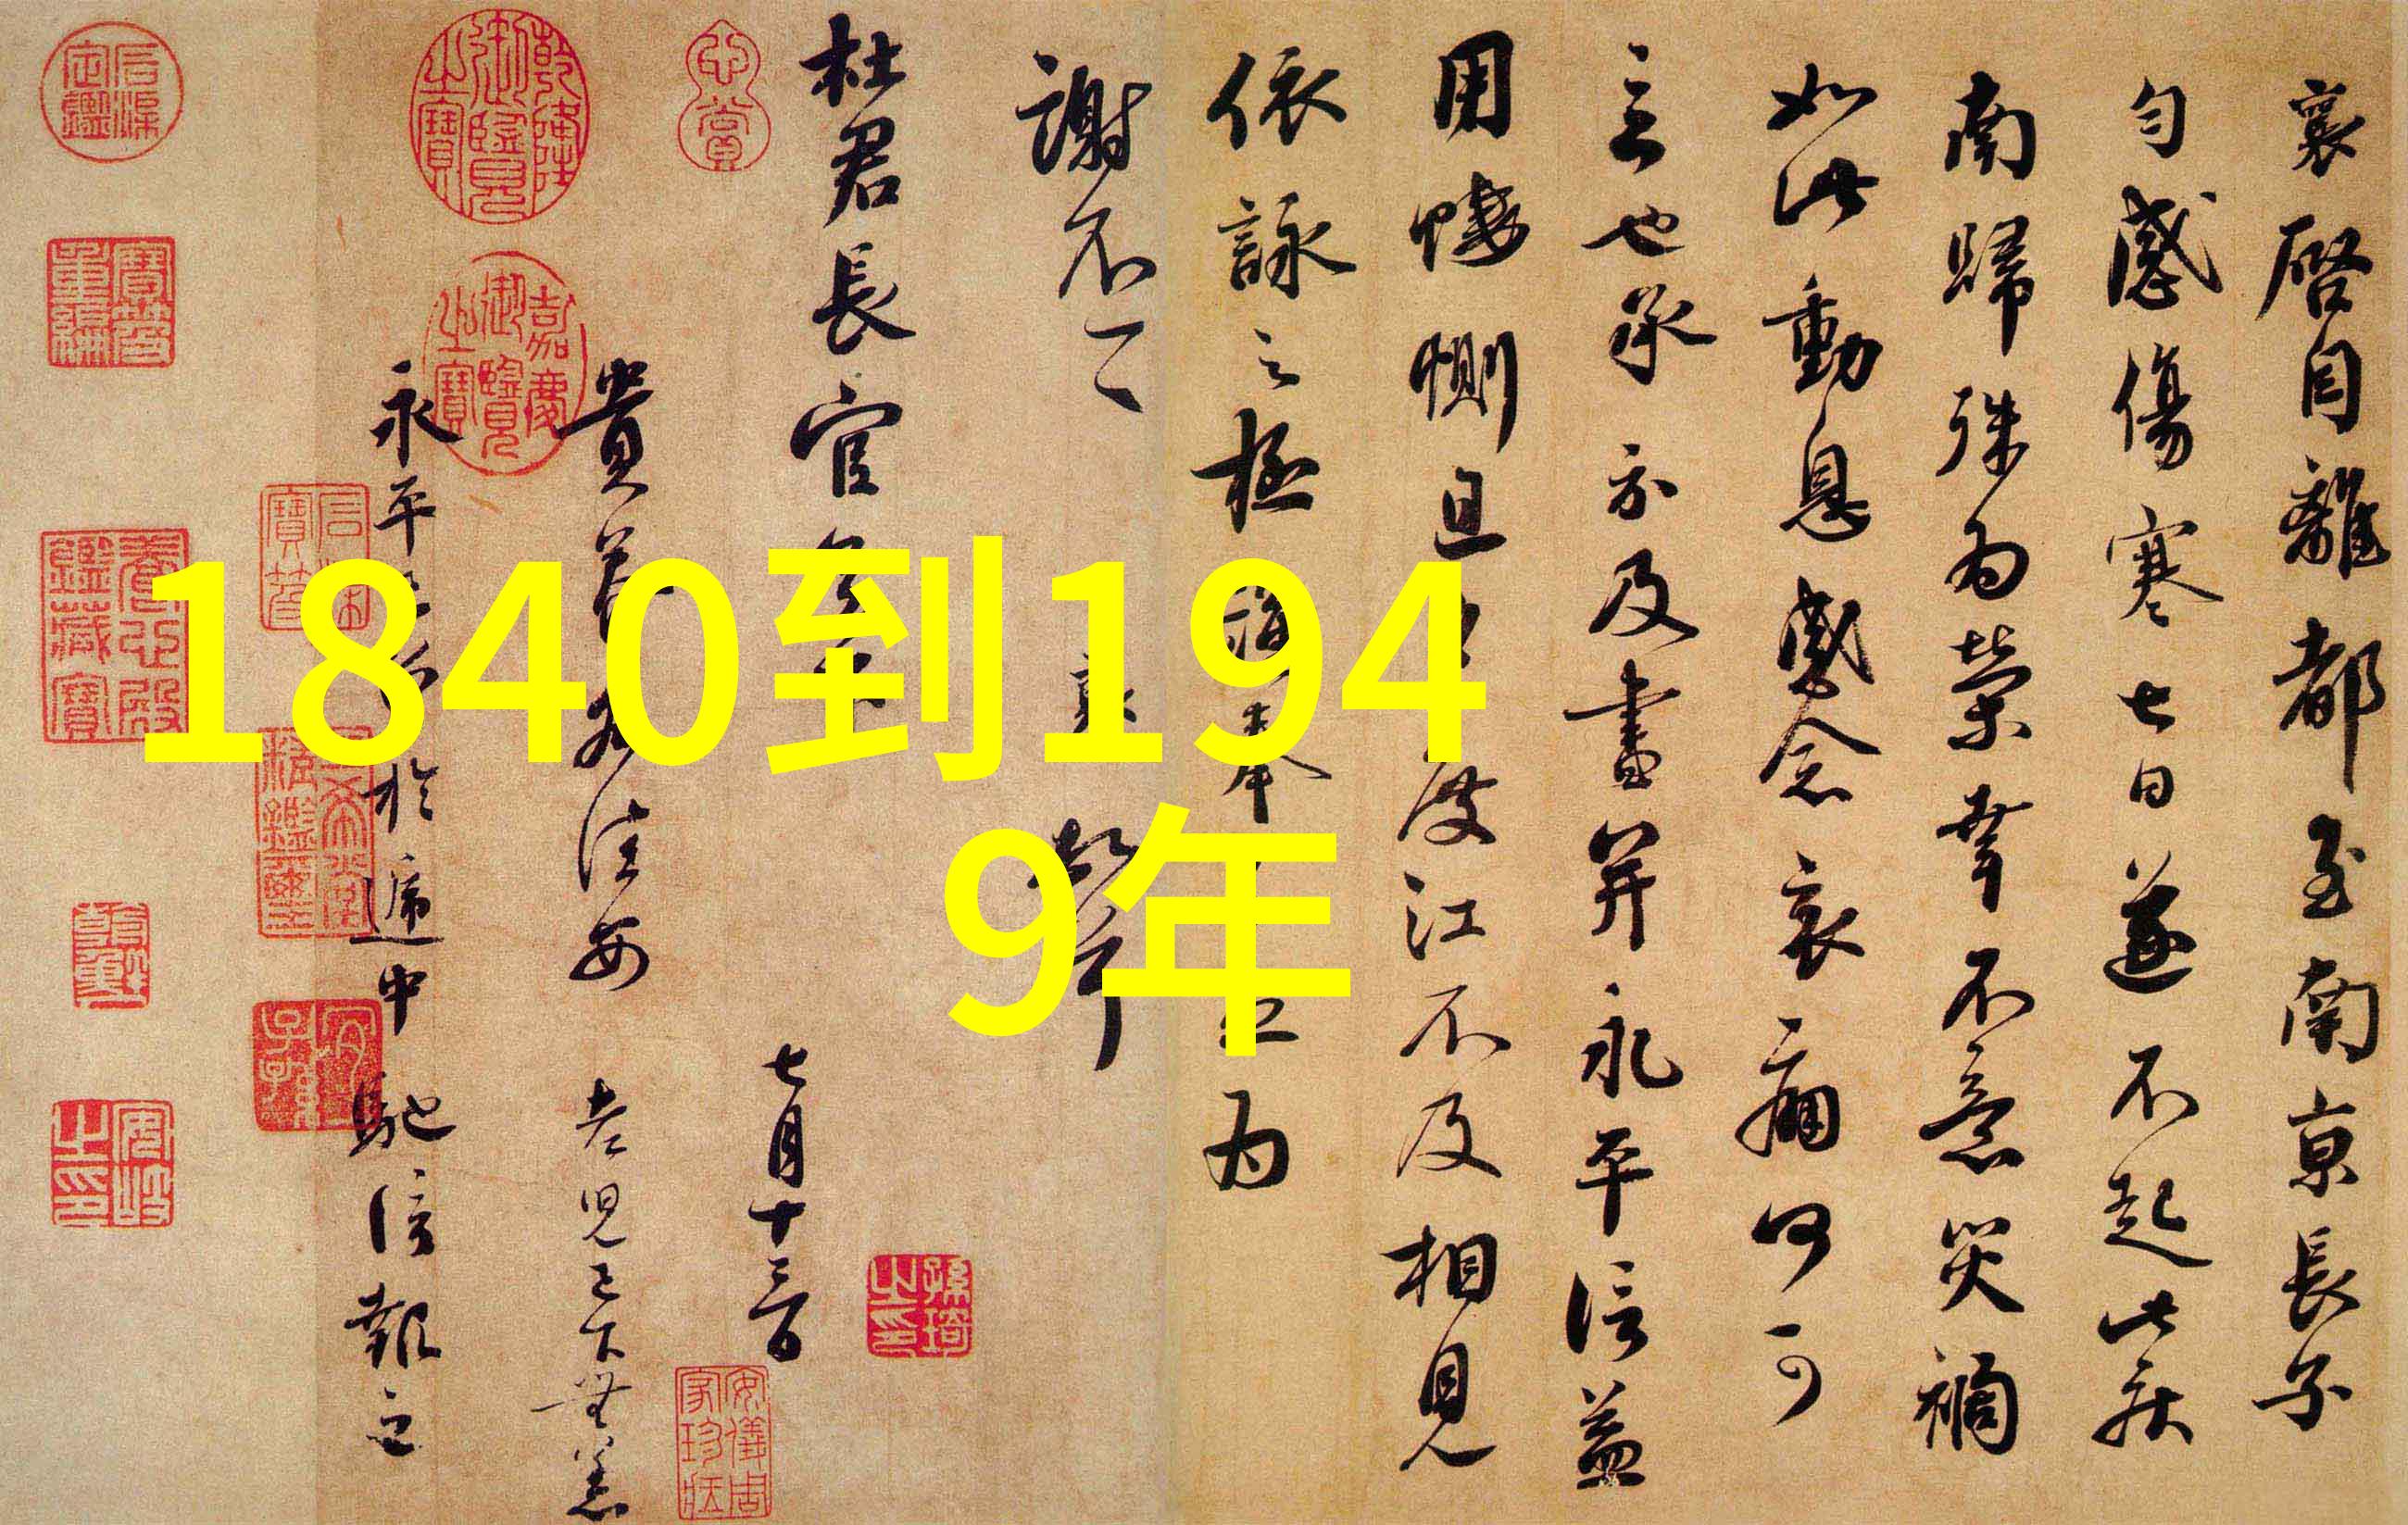 1840到194
9年
襄啓自離都至南京長子
匀感傷寒七日遂不起此疾
南歸殊為榮幸不意災禍
如此動息感念哀痛何可
言也承示及書并永平信益
用悽惻旦度江不及相見
依詠之極謹奉為
謝不一一 襄頓首
杜君長官
七月十三日
貴眷各佳安 老兒已下無恙
永平於遞中馳信報之
心賞
乾隆御覽之寶
嘉慶御覽之寶
石渠寶笈
三希堂精鑑璽
宜子孫
石渠定鑑
寶笈重編
養心殿鑑藏寶
安岐之印
安儀周家珍藏